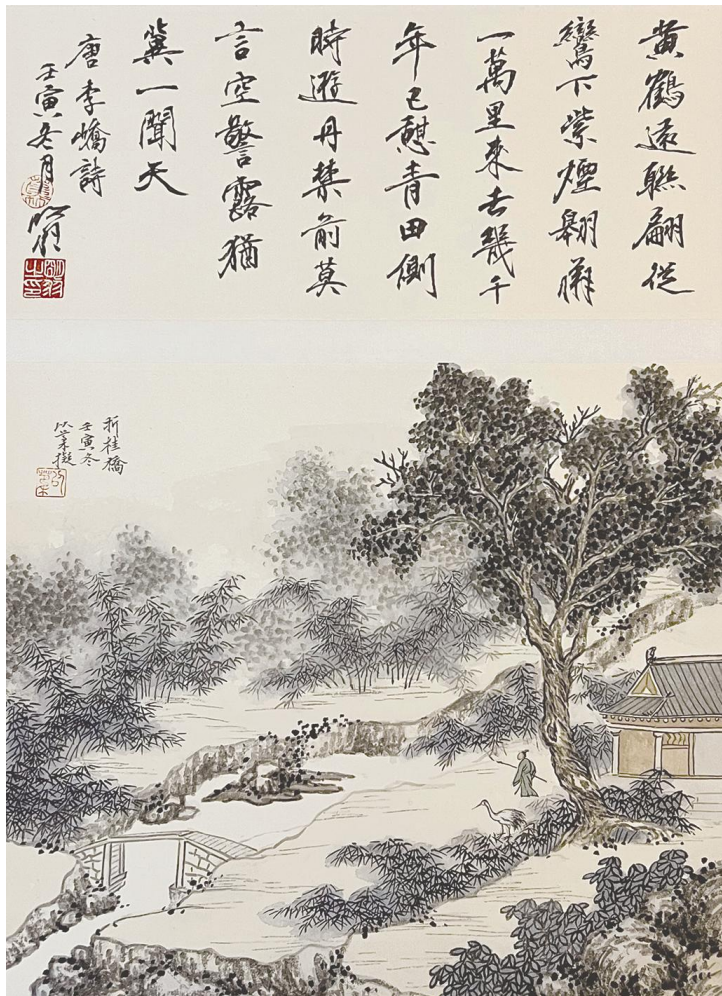 黃鶴遠聯翩從
鸞下紫煙翱翔
一萬里來去幾千
年已憩青田側
時遊丹禁前莫
言空警露猶
冀一聞天
唐李嶠詩
壬寅冬月
折桂橋
壬寅冬